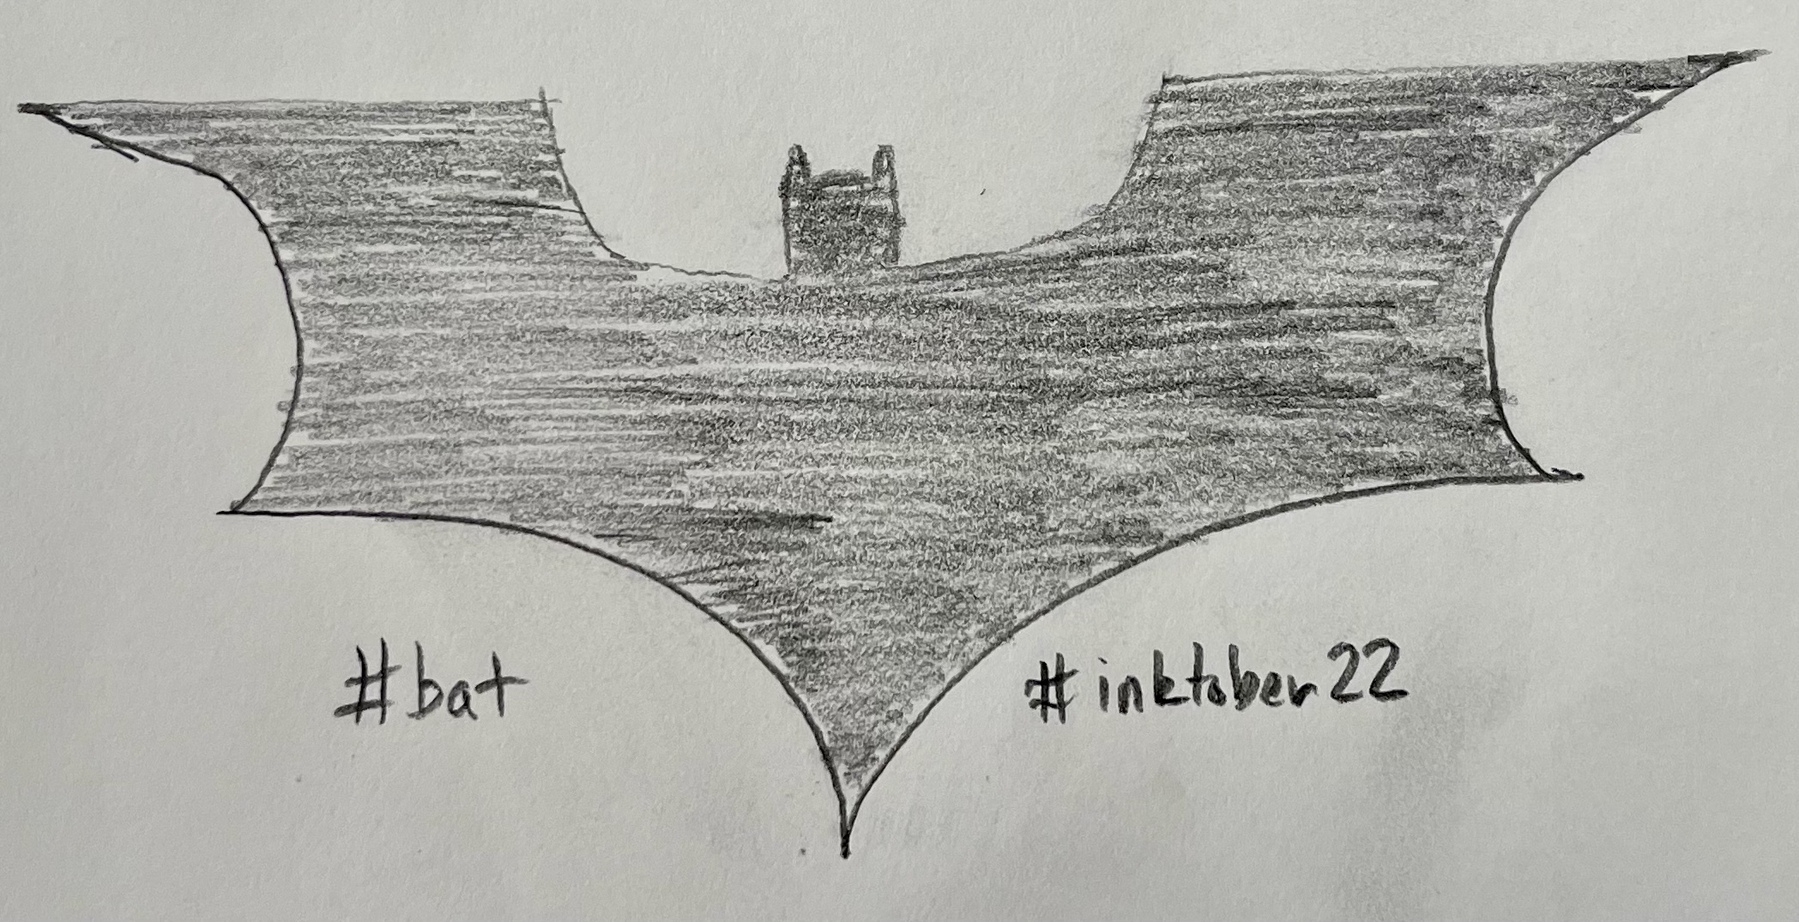 #bat
#inktober22